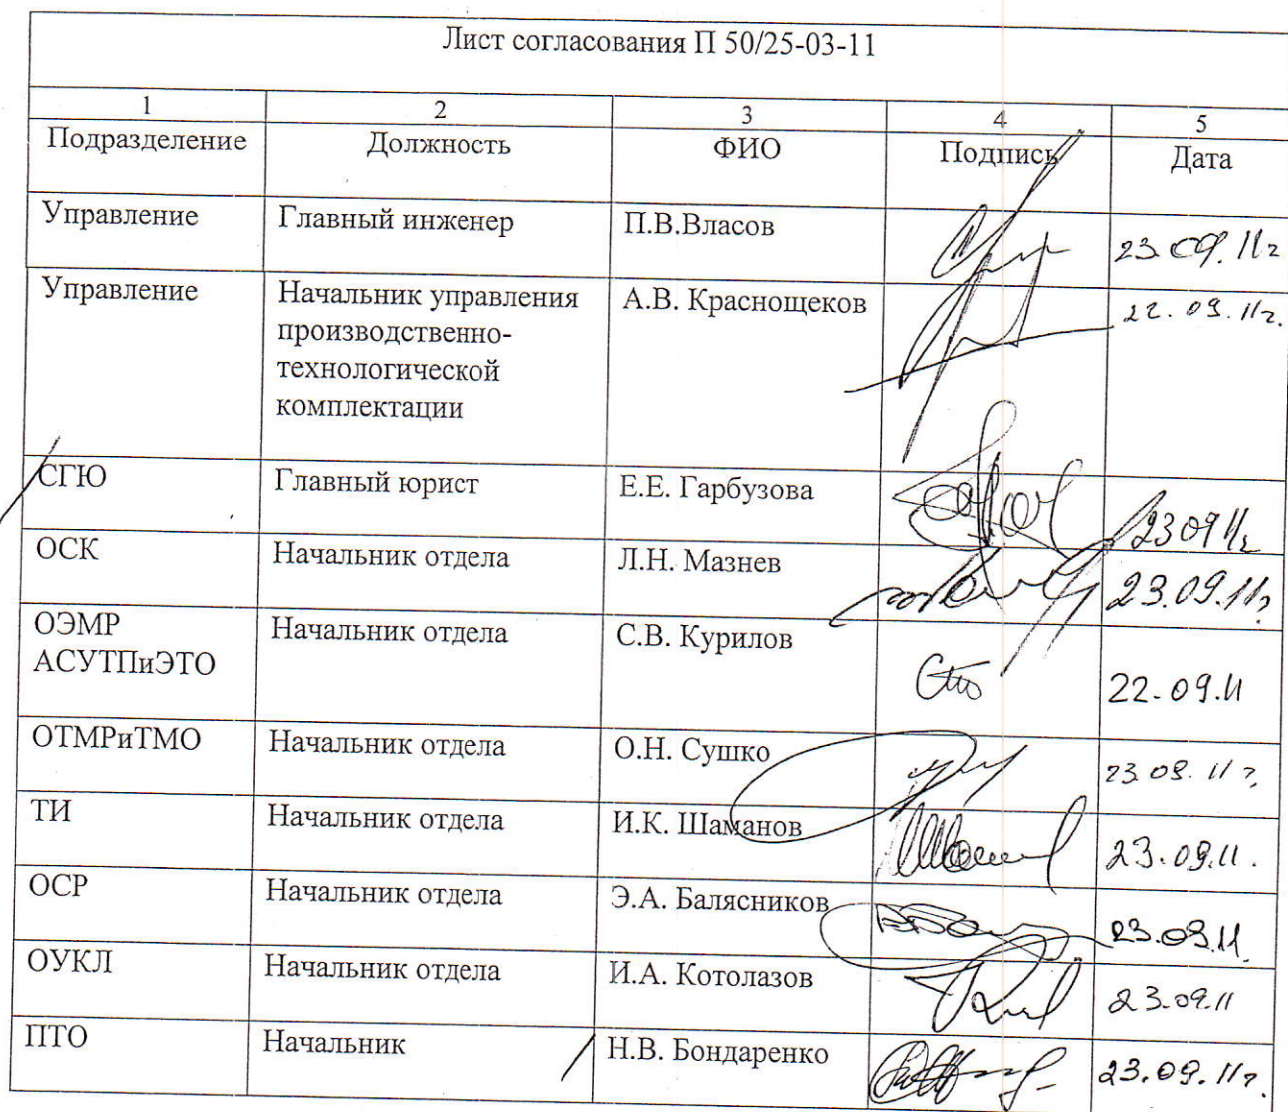 Лист согласования П 50/25-03-11
1 2 3 4 5
Подразделение Должность ФИО Подпись Дата
Управление Главный инженер П.В.Власов 23.09.11г
Управление Начальник управления А.В. Краснощеков 22.09.11г.
производственно-
технологической
комплектации
СГЮ Главный юрист Е.Е. Гарбузова 23 09 11г
ОСК Начальник отдела Л.Н. Мазнев 23.09.11г
ОЭМР Начальник отдела С.В. Курилов
АСУТПиЭТО 22.09.11
ОТМРиТМО Начальник отдела О.Н. Сушко 23.09.11г.
ТИ Начальник отдела И.К. Шаманов 23.09.11.
ОСР Начальник отдела Э.А. Балясников 23.09.11.
ОУКЛ Начальник отдела И.А. Котолазов 23.09.11
ПТО Начальник Н.В. Бондаренко 23.09.11г.